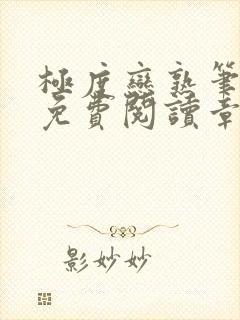 極度戀熟筆
免費閱讀章
影妙妙